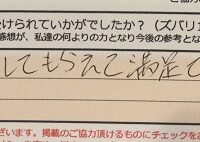 けられていかがでしたか？（ズバリ
感想が、私達の何よりの力となり今後の参考とな
してもらえて満足で
ざいます。掲載のご協力頂けるものにチェックをお